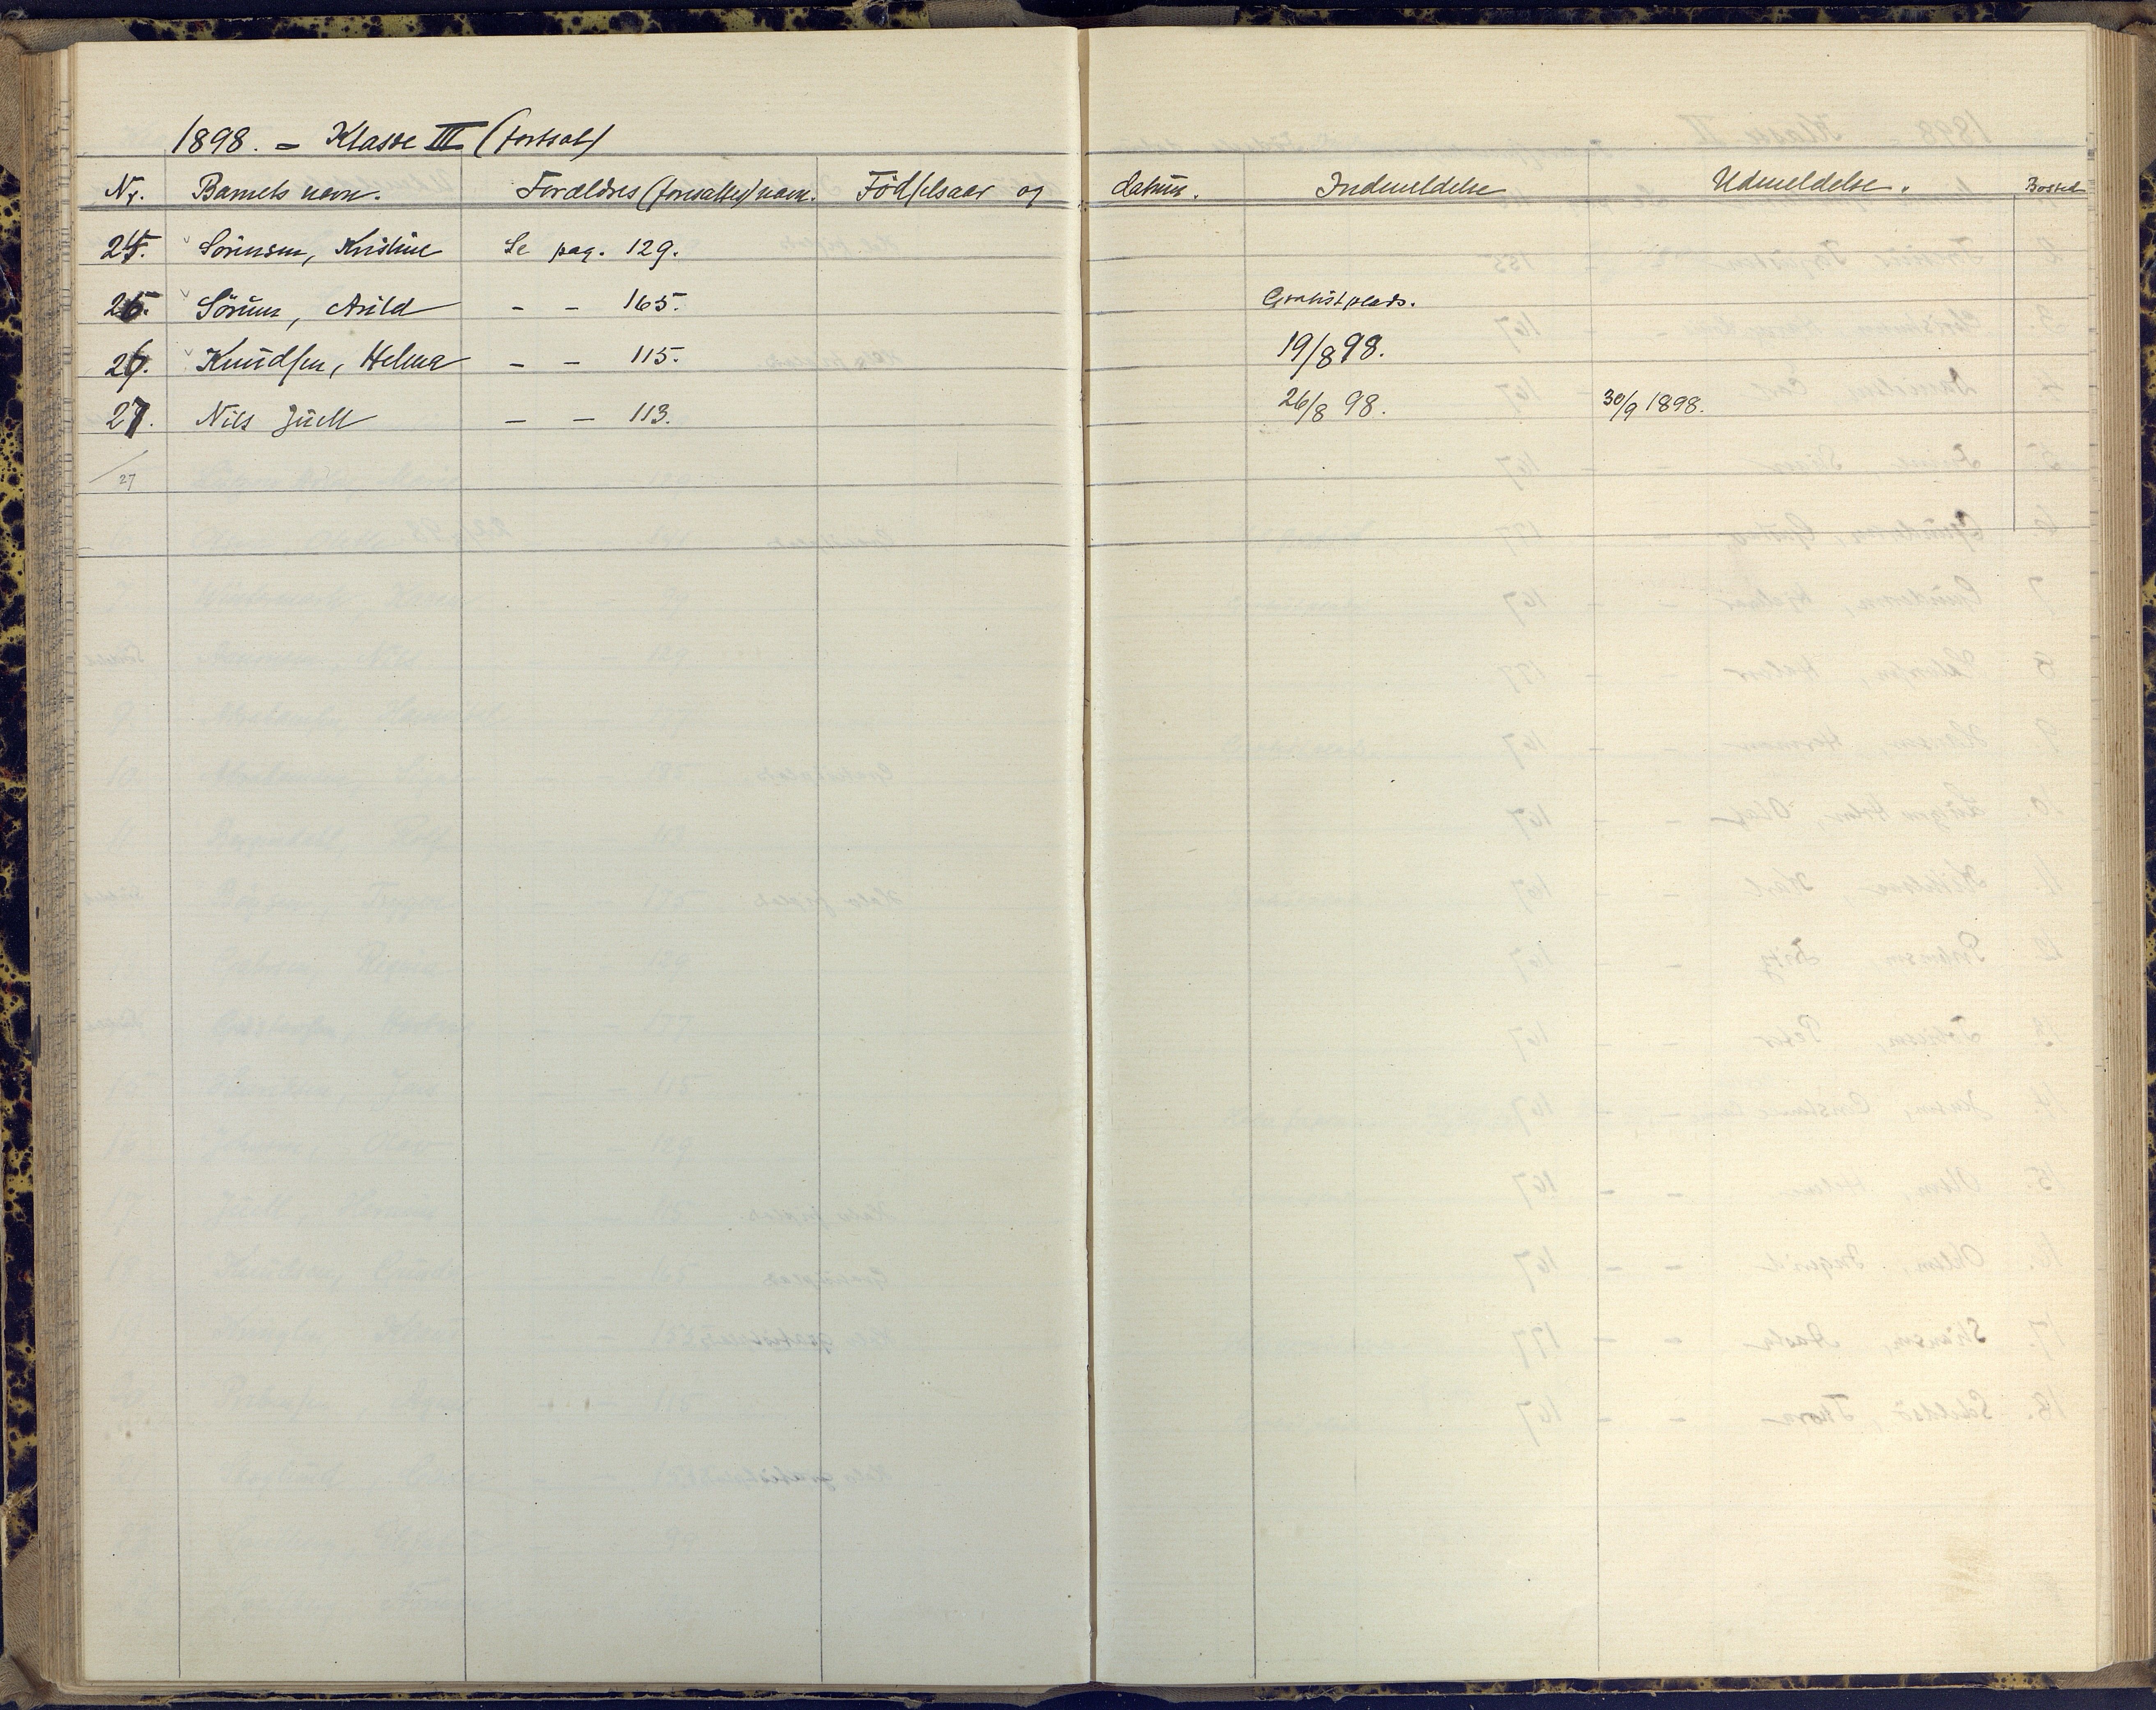 1898. – Klasse III (fortsat)
Nr. Barnets navn. Forældres (foresattes) navn. Födselsaar og datum. Indmeldelse Udmeldelse. Bosted
24. Sörensen, Kristine Se pag. 129.
25. Sörum, Arild – – 165. Gratistplads.
26. Knudsen, Helma – – 115. 19/8 98.
27. Nils Juell – – 113. 26/8 98. 30/9 1898.
27